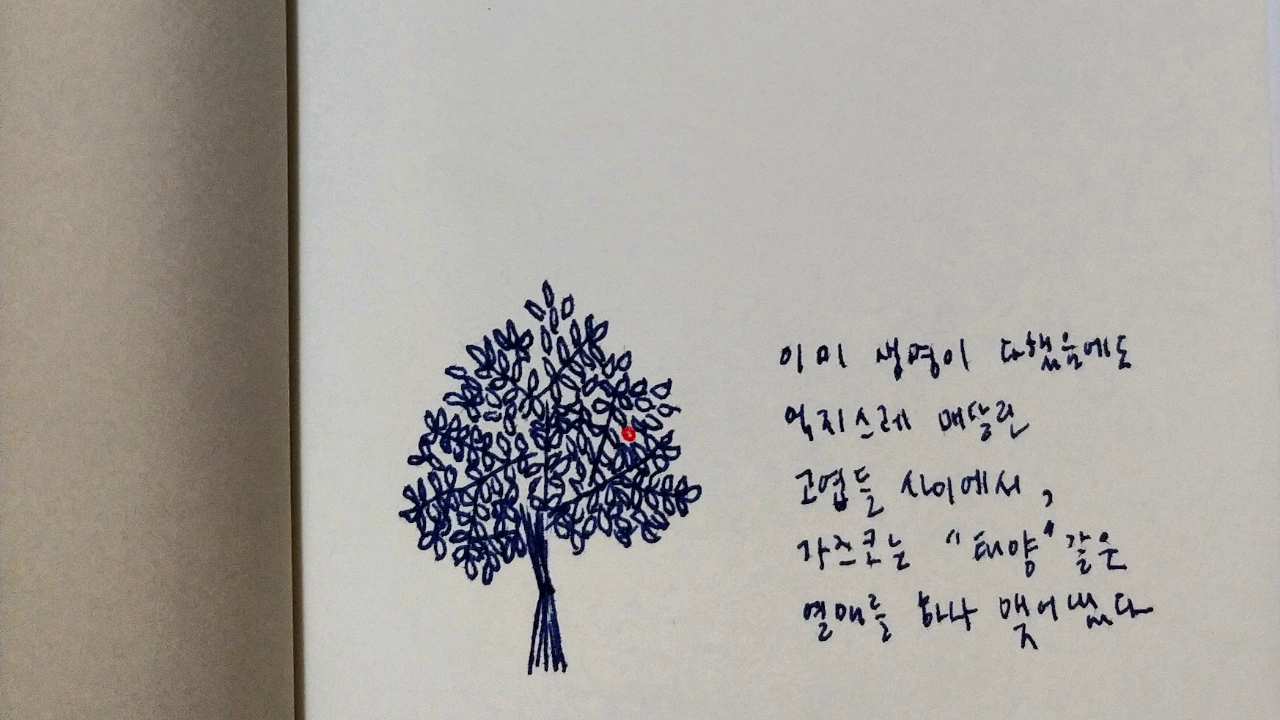 이미 생명이 다했음에도
억지스레 매달린
고엽들 사이에서,
가즈코는 "태양"같은
열매를 하나 맺어냈다